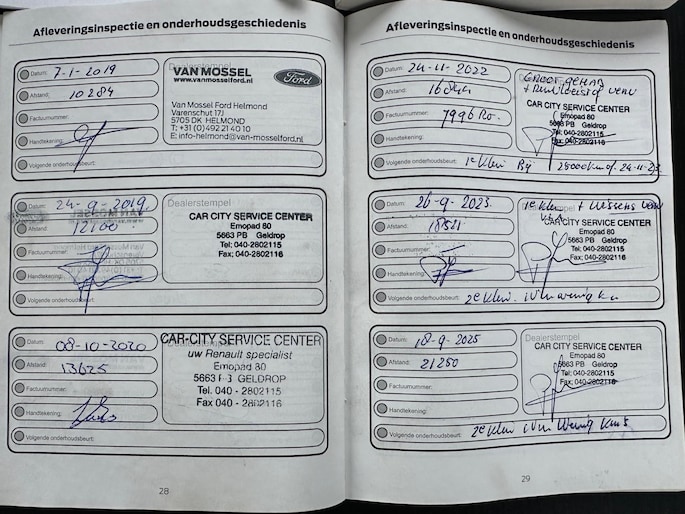 Afleveringsinspectie en onderhoudsgeschiedenis
Datum: 7-1-2019
Afstand: 10284
Factuurnummer:
Handtekening:
Volgende onderhoudsbeurt:
Dealerstempel
VAN MOSSEL
www.vanmosselford.nl
Ford
Van Mossel Ford Helmond
Varenschut 17J
5705 DK HELMOND
T: +31 (0)492 21 40 10
E: info-helmond@van-mosselford.nl
Datum: 24-9-2019
Afstand: 12100
Factuurnummer:
Handtekening:
Volgende onderhoudsbeurt:
Dealerstempel
CAR CITY SERVICE CENTER
Emopad 80
5663 PB Geldrop
Tel: 040-2802115
Fax: 040-2802116
Datum: 08-10-2020
Afstand: 13625
Factuurnummer:
Handtekening:
Volgende onderhoudsbeurt:
CAR-CITY SERVICE CENTER
uw Renault specialist
Emopad 80
5663 GELDROP
Tel. 040 - 2802115
Fax 040 - 2802116
28
Afleveringsinspectie en onderhoudsgeschiedenis
Datum: 24-11-2022
Afstand:
Factuurnummer: 7996
Handtekening:
Volgende onderhoudsbeurt: 1e Klein Bij
CAR CITY SERVICE CENTER
Emopad 80
5663 PB Geldrop
Tel: 040-2802115
Fax: 040-2802116
Datum: 26-9-2023
Afstand: 18511
Factuurnummer:
Handtekening:
Volgende onderhoudsbeurt: 2e Klein
1e Klein +
CAR CITY SERVICE CENTER
Emopad 80
5663 PB Geldrop
Tel: 040-2802115
Fax: 040-2802116
Datum: 18-9-2025
Afstand: 21250
Factuurnummer:
Handtekening:
Volgende onderhoudsbeurt: 2e Klein
Dealerstempel
CAR CITY SERVICE CENTER
Emopad 80
5663 PB Geldrop
Tel: 040-2802115
Fax: 040-2802116
29